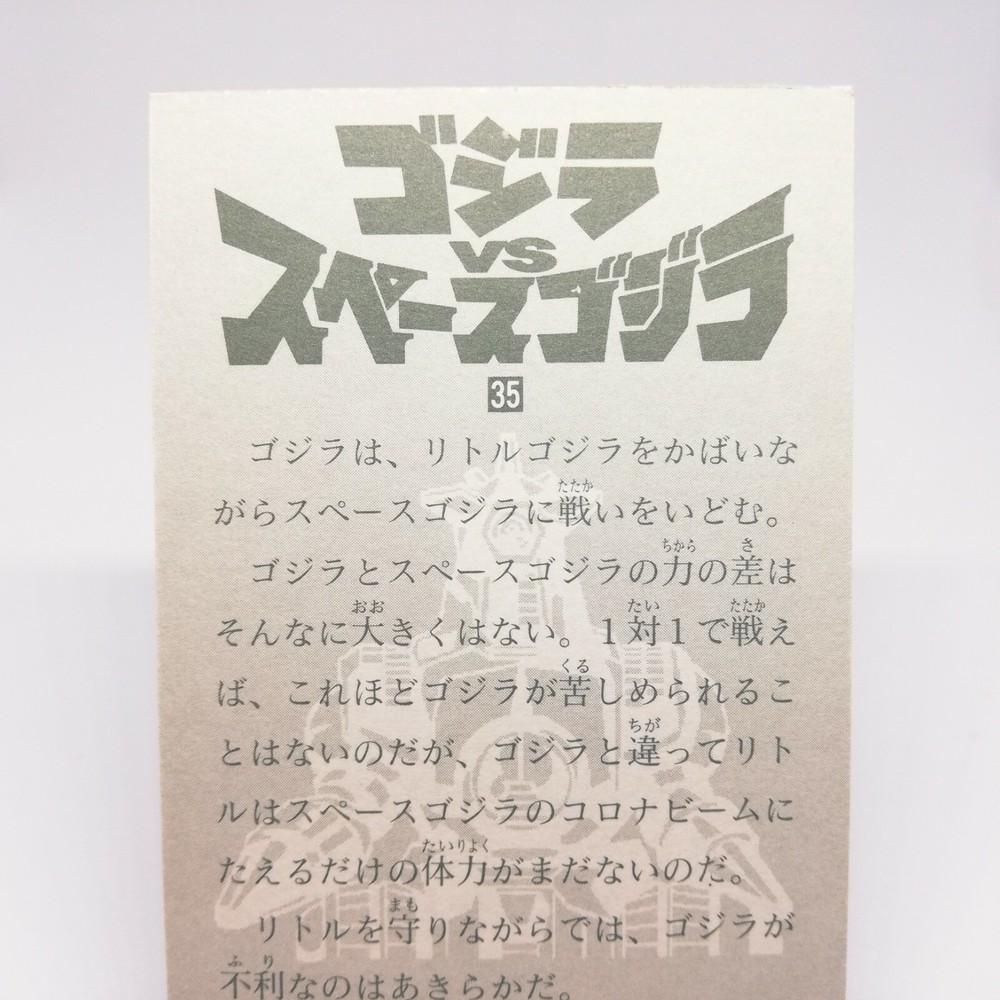 ゴジラ
VS
スペースゴジラ
35
ゴジラは、リトルゴジラをかばいな
たたか
がらスペースゴジラに戦いをいどむ。
ちから さ
ゴジラとスペースゴジラの力の差は
おお たい たたか
そんなに大きくはない。１対１で戦え
くる
ば、これほどゴジラが苦しめられるこ
ちが
とはないのだが、ゴジラと違ってリト
ルはスペースゴジラのコロナビームに
たいりょく
たえるだけの体力がまだないのだ。
まも
リトルを守りながらでは、ゴジラが
ふり
不利なのはあきらかだ。